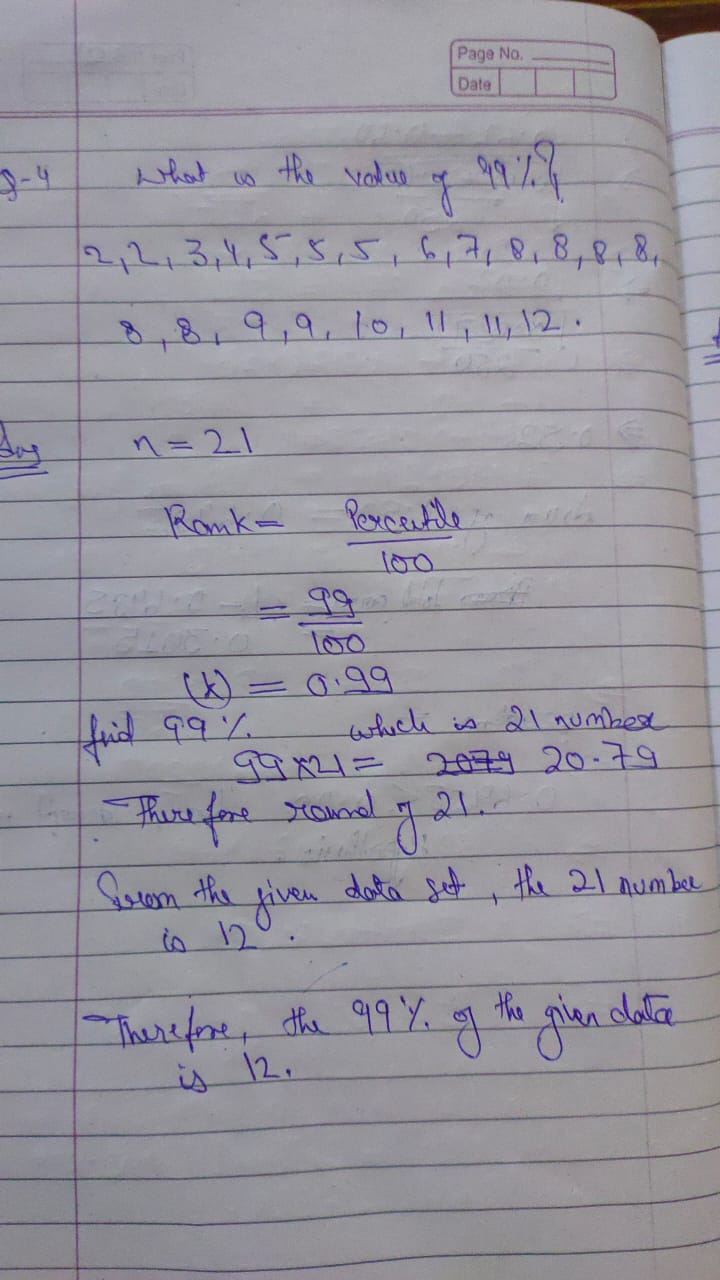 Page No.
Date
Q-4 What is the value of 99%?
2,2,3,4,5,5,5,6,7,8,8,8,8,
8,8,9,9,10,11,11,12.
Ans n=21
Rank= Percentile
100
= 99
100
(k) = 0.99
find 99% which is 21 number
99x21= 2079 20.79
Therefore round of 21.
From the given data set, the 21 number
is 12.
Therefore, the 99% of the given data
is 12.